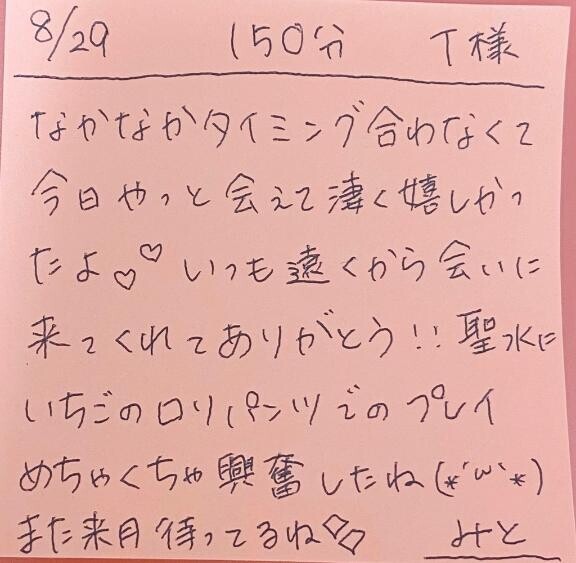 8/29 150分 T様
なかなかタイミング合わなくて
今日やっと会えて凄く嬉しかっ
たよ♡♡いつも遠くから会いに
来てくれてありがとう!!聖水に
いちごのロリパンツでのプレイ
めちゃくちゃ興奮したね(*´ω`*)
また来月待ってるね♡♡ みと